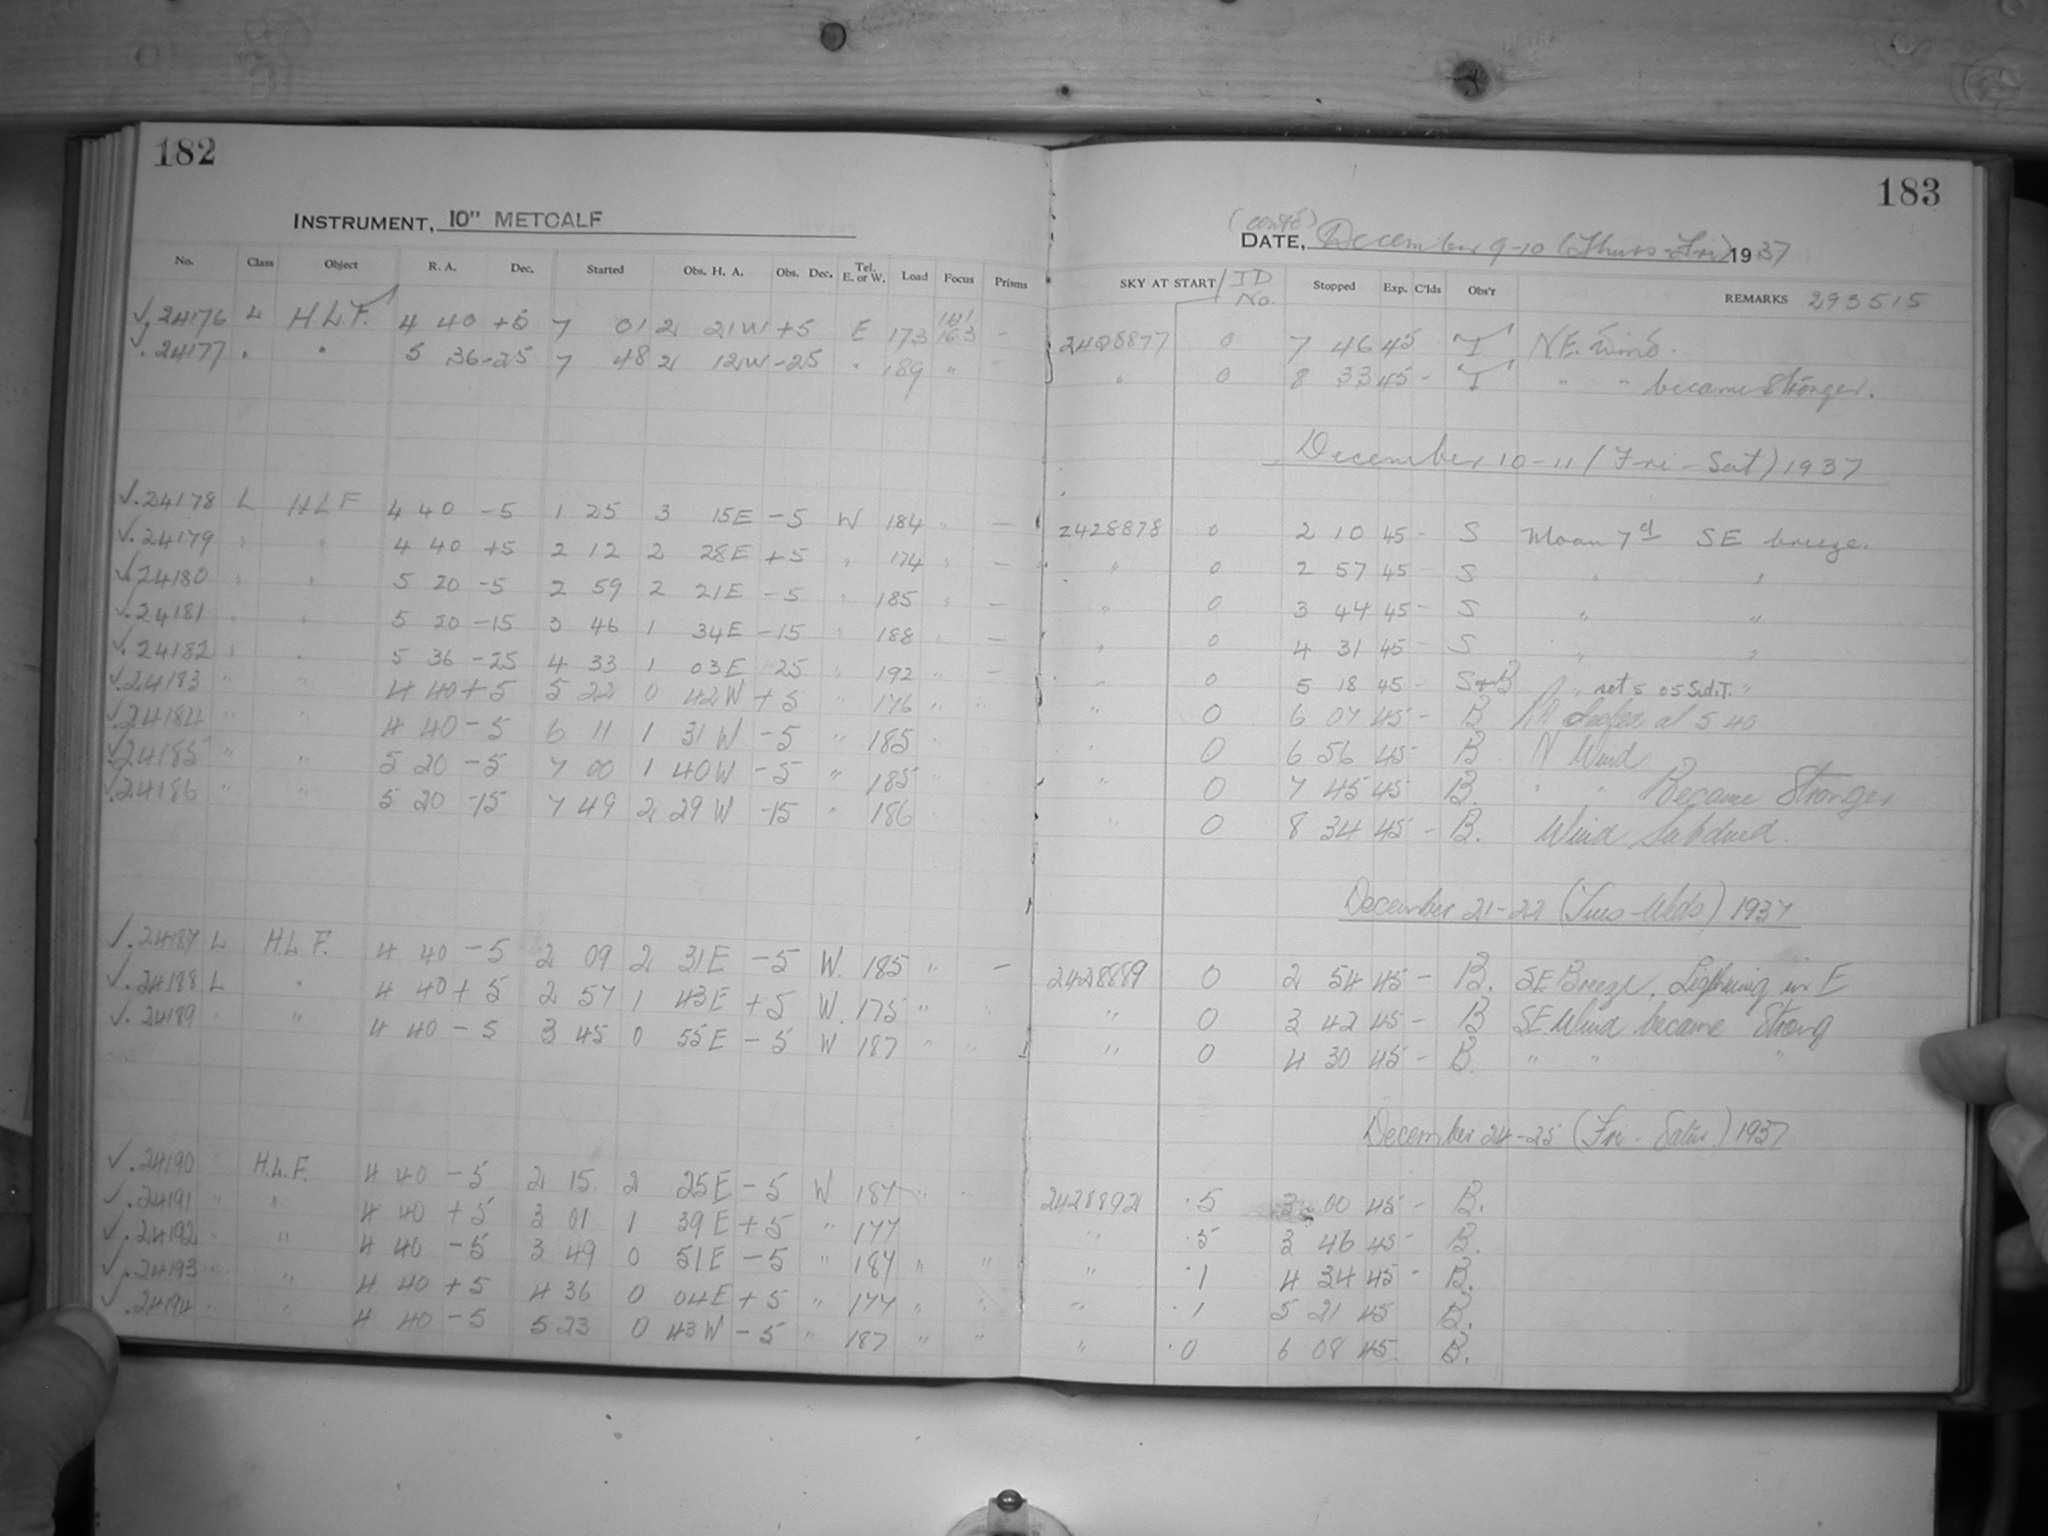 182
183
INSTRUMENT, 10" METCALF
(contd)
DATE, December 9-10 (Thurs-Fri) 1937
No. Class Object R. A. Dec. Started Obs. H. A. Obs. Dec. Tel. E. or W. Load Focus Prisms SKY AT START / JD No. Stopped Exp. C'lds Obs'r REMARKS 293515
√. 24176 L H.L.F. 4 40 +5 7 01 2 21W +5 E 173 16.3 - 2428877 0 7 46 45 T N.E. Wind.
√. 24177 " " 5 36 -25 7 48 2 12W -25 " 189 " - " 0 8 33 45 - T " " became stronger.
December 10-11 (Fri-Sat) 1937
√. 24178 L HLF 4 40 -5 1 25 3 15E -5 W 184 " - 2428878 0 2 10 45 - S Moon 7d SE breeze.
√. 24179 " " 4 40 +5 2 12 2 28E +5 " 174 " - " 0 2 57 45 - S " "
√. 24180 " " 5 20 -5 2 59 2 21E -5 " 185 " - " 0 3 44 45 - S " "
√. 24181 " " 5 20 -15 3 46 1 34E -15 " 188 " - " 0 4 31 45 - S " "
√. 24182 " " 5 36 -25 4 33 1 03E 25 " 192 " - " 0 5 18 45 - S+B " set 5 05 Sid.T. "
√. 24183 " " 4 40 +5 5 22 0 42W +5 " 176 " " " 0 6 07 45 - B at 5 40
√. 24184 " " 4 40 -5 6 11 1 31W -5 " 185 " " 0 6 56 45 - B N Wind
√. 24185 " " 5 20 -5 7 00 1 40W -5 " 185 " " 0 7 45 45 - B. " " Became Stronger
√. 24186 " " 5 20 -15 7 49 2 29W -15 " 186 " 0 8 34 45 - B. Wind Subdued.
December 21-22 (Tues-Weds) 1937
√. 24187 L H.L.F. 4 40 -5 2 09 2 31E -5 W. 185 " - 2428889 0 2 54 45 - B. SE Breeze. Lightning in E
√. 24188 L " 4 40 +5 2 57 1 43E +5 W. 175 " " 0 3 42 45 - B SE Wind became Strong
√. 24189 " " 4 40 -5 3 45 0 55E -5 W 187 " " " 0 4 30 45 - B. " " "
December 24-25 (Fri-Satur.) 1937
√. 24190 H.L.F. 4 40 -5 2 15. 2 25E -5 W 187 " " 2428892 .5 3 00 45 - B.
√. 24191 " " 4 40 +5 3 01 1 39E +5 " 177 " .5 3 46 45 - B.
√. 24192 " " 4 40 -5 3 49 0 51E -5 " 187 " " " .1 4 34 45 - B.
√. 24193 " " 4 40 +5 4 36 0 04E +5 " 177 " " " .1 5 21 45 B.
√. 24194 " " 4 40 -5 5 23 0 43W -5 " 187 " " " .0 6 08 45. B.